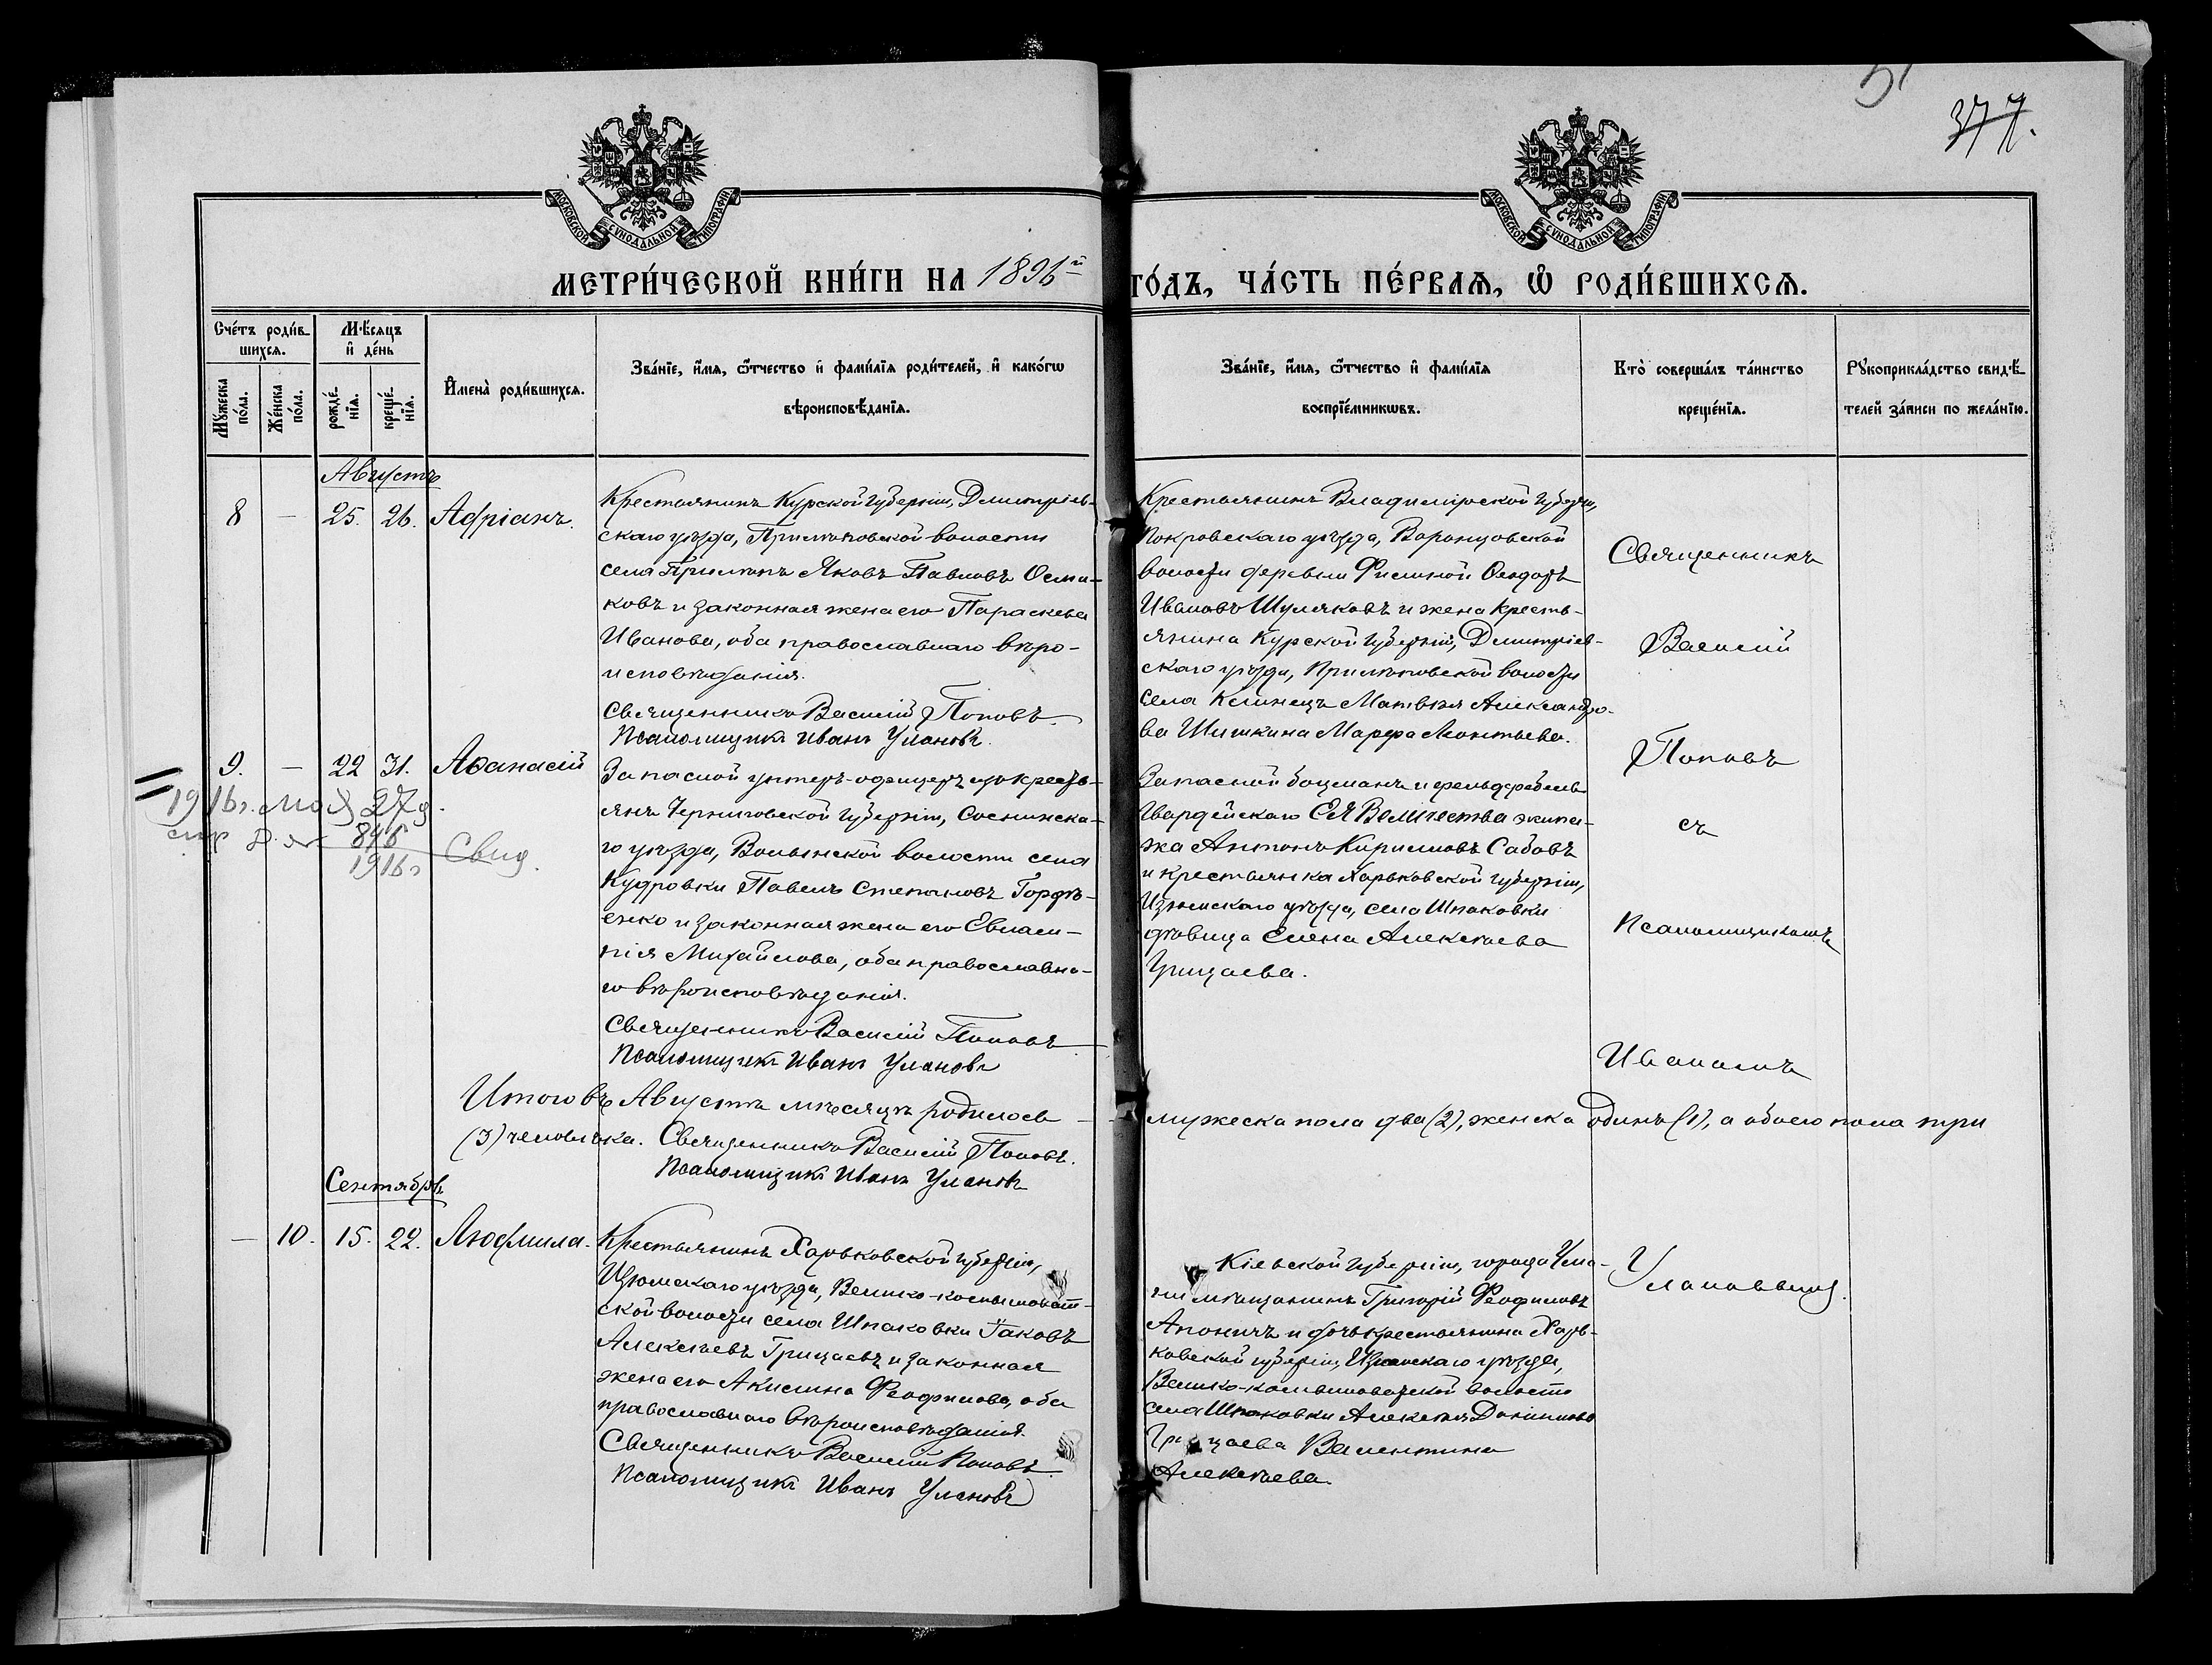 377.
МОСКОВСКОЙ СѴНОДАЛЬНОЙ ТИПОГРАФІИ
МОСКОВСКОЙ СѴНОДАЛЬНОЙ ТИПОГРАФІИ
МЕТРИ́ЧЕСКОЙ КНИ́ГИ НА 1896й ГО́ДЪ, ЧА́СТЬ ПЕ́РВАѦ, Ѡ҆ РОДИ́ВШИХСѦ.
Сче́тъ роди́в-
шихсѧ.
Мꙋжеска по́ла.
Же́нска по́ла.
Мѣ́сяцъ
и҆ де́нь
рожде́-
нїѧ.
креще́-
нїѧ.
И҆мена̀ роди́вшихсѧ.
Зва́нїе, и҆́мѧ, ѻ҆́тчество и҆ фами́лїѧ роди́телей, и҆ како́гѡ
вѣроисповѣ́данїѧ.
Зва́нїе, и҆́мѧ, ѻ҆́тчество и҆ фами́лїѧ
воспрїе́мникѡвъ.
Кто̀ соверша́лъ та́инство
креще́нїѧ.
Рꙋкоприкла́дство свидѣ́-
телей за́писи по жела́нїю.
Августъ
8 — 25. 26. Адріанъ.
Крестьянинъ Курской губерніи, Димитріев-
скаго уѣзда, Прилѣповской волости
села Прилѣпъ Яковъ Павловъ Осми-
ковъ и законная жена его Параскева
Иванова, оба православнаго вѣро-
исповѣданія.
Священникъ Василій Поповъ
Псаломщикъ Иванъ Улановъ.
Крестьянинъ Владимірской губерніи,
Покровскаго уѣзда, Воронцовской
волости деревни Филиной Ѳеодотъ
Ивановъ Шуляковъ и жена кресть-
янина Курской губерніи, Димитріев-
скаго уѣзда, Прилѣповской волости
села Клинецъ Матвѣя Александро-
ва Шишкина Марѳа Леонтьева.
9. — 22 31. Аѳанасій
1916г. мая 27д.
846
1916г
Свид.
Запасной унтеръ-офицеръ изъ кресть-
янъ Черниговской губерніи, Сосницка-
го уѣзда, Волынской волости села
Кудровки Павелъ Степановъ Гордѣ-
енко и законная жена его Евлам-
пія Михайлова, оба православна-
го вѣроисповѣданія.
Священникъ Василій Поповъ
Псаломщикъ Иванъ Улановъ
Запасной боцманъ и фельдфебель
Гвардейскаго ЕЯ Величества экипа-
жа Антонъ Кирилловъ Сабовъ
и крестьянка Харьковской губерніи,
Изюмскаго уѣзда, села Шпаковки
дѣвица Елена Алексѣева
Грицаева.
Итого въ Августѣ мѣсяцѣ родилось — мужеска пола два (2), женска одинъ (1), а обоего пола три
(3) человѣка. Священникъ Василій Поповъ.
Псаломщикъ Иванъ Улановъ
Сентябрь
— 10. 15. 22. Людмила.
Крестьянинъ Харьковской губерніи,
Изюмскаго уѣзда, Велико-камышеват-
ской волости села Шпаковки Іаковъ
Алексѣевъ Грицаевъ и законная
жена его Акилина Ѳеофилова, оба
православнаго вѣроисповѣданія
Священникъ Василій Поповъ
Псаломщикъ Иванъ Улановъ
Кіевской губерніи, города Ума-
ни мѣщанинъ Григорій Ѳеофиловъ
и дочь крестьянина Харь-
ковской губерніи, Изюмскаго уѣзда,
Велико-камышеватской волости
села Шпаковки Алексѣя Даніилова
Грицаева Валентина
Алексѣева.
Священникъ
Василій
Поповъ
съ
Псаломщикомъ
Иваномъ
Улановымъ.